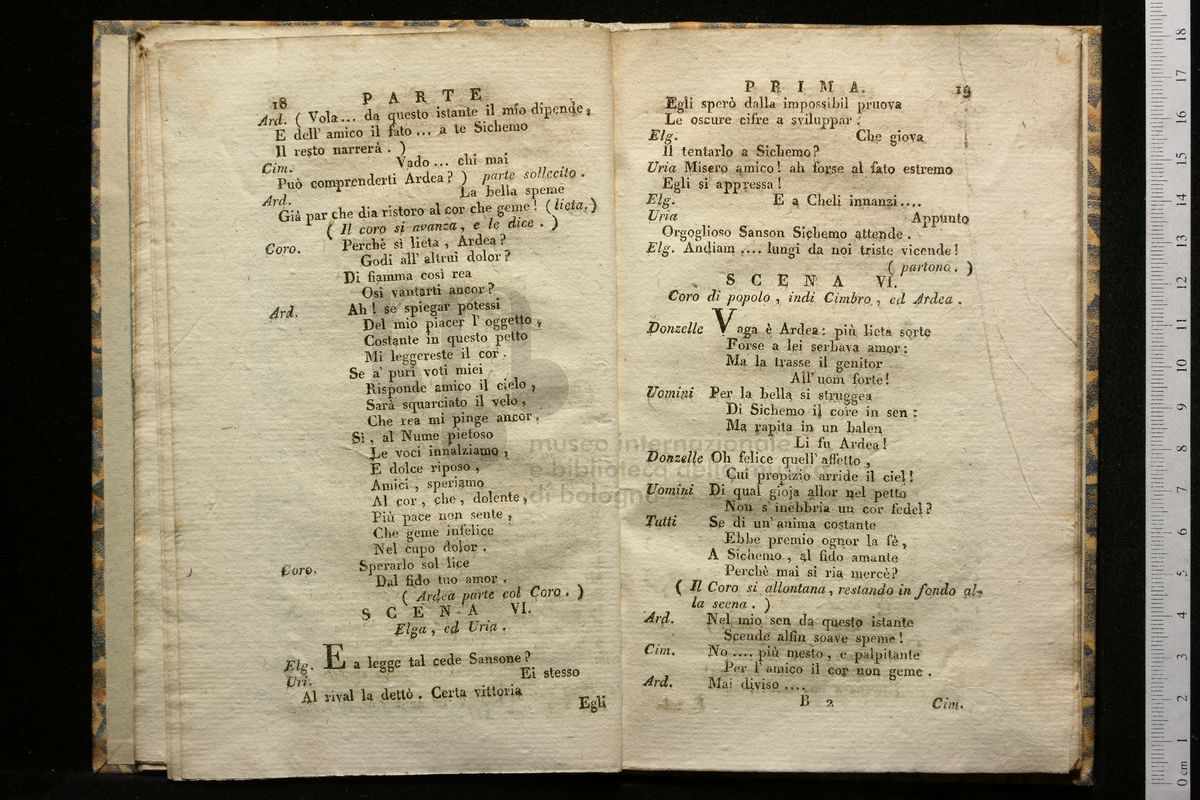 18 PARTE
Ard. ( Vola... da questo istante il mio dipende,
E dell' amico il fato ... a te Sichemo
Il resto narrerà. )
Cim. Vado ... chi mai
Può comprenderti Ardea? ) parte sollecito.
Ard. La bella speme
Già par che dia ristoro al cor che geme! (lieta,)
( Il coro si avanza, e le dice. )
Coro. Perchè sì lieta, Ardea?
Godi all' altrui dolor?
Di fiamma così rea
Osi vantarti ancor?
Ard. Ah! se spiegar potessi
Del mio piacer l' oggetto,
Costante in questo petto
Mi leggereste il cor.
Se a' puri voti miei
Risponde amico il cielo,
Sarà squarciato il velo,
Che rea mi pinge ancor.
Sì, al Nume pietoso
Le voci innalziamo,
E dolce riposo,
Amici, speriamo
Al cor, che, dolente,
Più pace non sente,
Che geme infelice
Nel cupo dolor.
Coro. Sperarlo sol lice
Dal fido tuo amor.
( Ardea parte col Coro. )
SCENA VI.
Elga, ed Uria.
Elg. Ea legge tal cede Sansone?
Uri. Ei stesso
Al rival la dettò. Certa vittoria
Egli
PRIMA. 19
Egli sperò dalla impossibil pruova
Le oscure cifre a sviluppar.
Elg. Che giova
Il tentarlo a Sichemo?
Uria Misero amico! ah forse al fato estremo
Egli si appressa!
Elg. E a Cheli innanzi....
Uria Appunto
Orgoglioso Sanson Sichemo attende.
Elg. Andiam .... lungi da noi triste vicende!
( partono. )
SCENA VI.
Coro di popolo, indi Cimbro, ed Ardea.
Donzelle Vaga è Ardea: più lieta sorte
Forse a lei serbava amor:
Ma la trasse il genitor
All' uom forte!
Uomini Per la bella si struggea
Di Sichemo il core in sen:
Ma rapita in un balen
Li fu Ardea!
Donzelle Oh felice quell' affetto,
Cui propizio arride il ciel!
Uomini Di qual gioja allor nel petto
Non s' inebbria un cor fedel?
Tutti Se di un' anima costante
Ebbe premio ognor la fè,
A Sichemo, al fido amante
Perchè mai sì ria mercè?
( Il Coro si allontana, restando in fondo al-
la scena. )
Ard. Nel mio sen da questo istante
Scende alfin soave speme!
Cim. No .... più mesto, e palpitante
Per l' amico il cor non geme.
Ard. Mai diviso ....
B 2 Cim.
museo internazionale
e biblioteca della musica
di bologna
0 cm 1 2 3 4 5 6 7 8 9 10 11 12 13 14 15 16 17 18